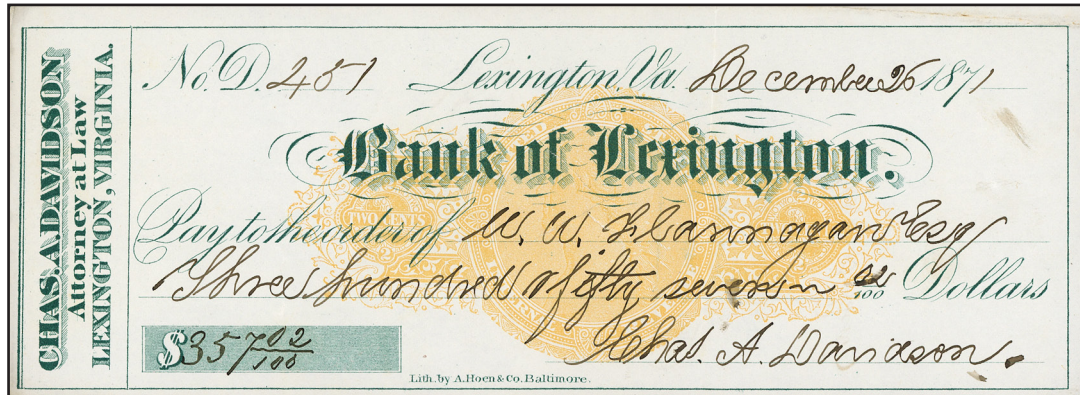 CHAS. A. DAVIDSON
Attorney at Law
LEXINGTON, VIRGINIA.
No. D. 451 Lexington, Va. December 26 1871
Bank of Lexington.
TWO CENTS
Pay to the order of W. W. Flannagan Esq
Three hundred & fifty seven 02/100 Dollars
$357 02/100
Chas. A. Davidson.
Lith. by A. Hoen & Co. Baltimore.